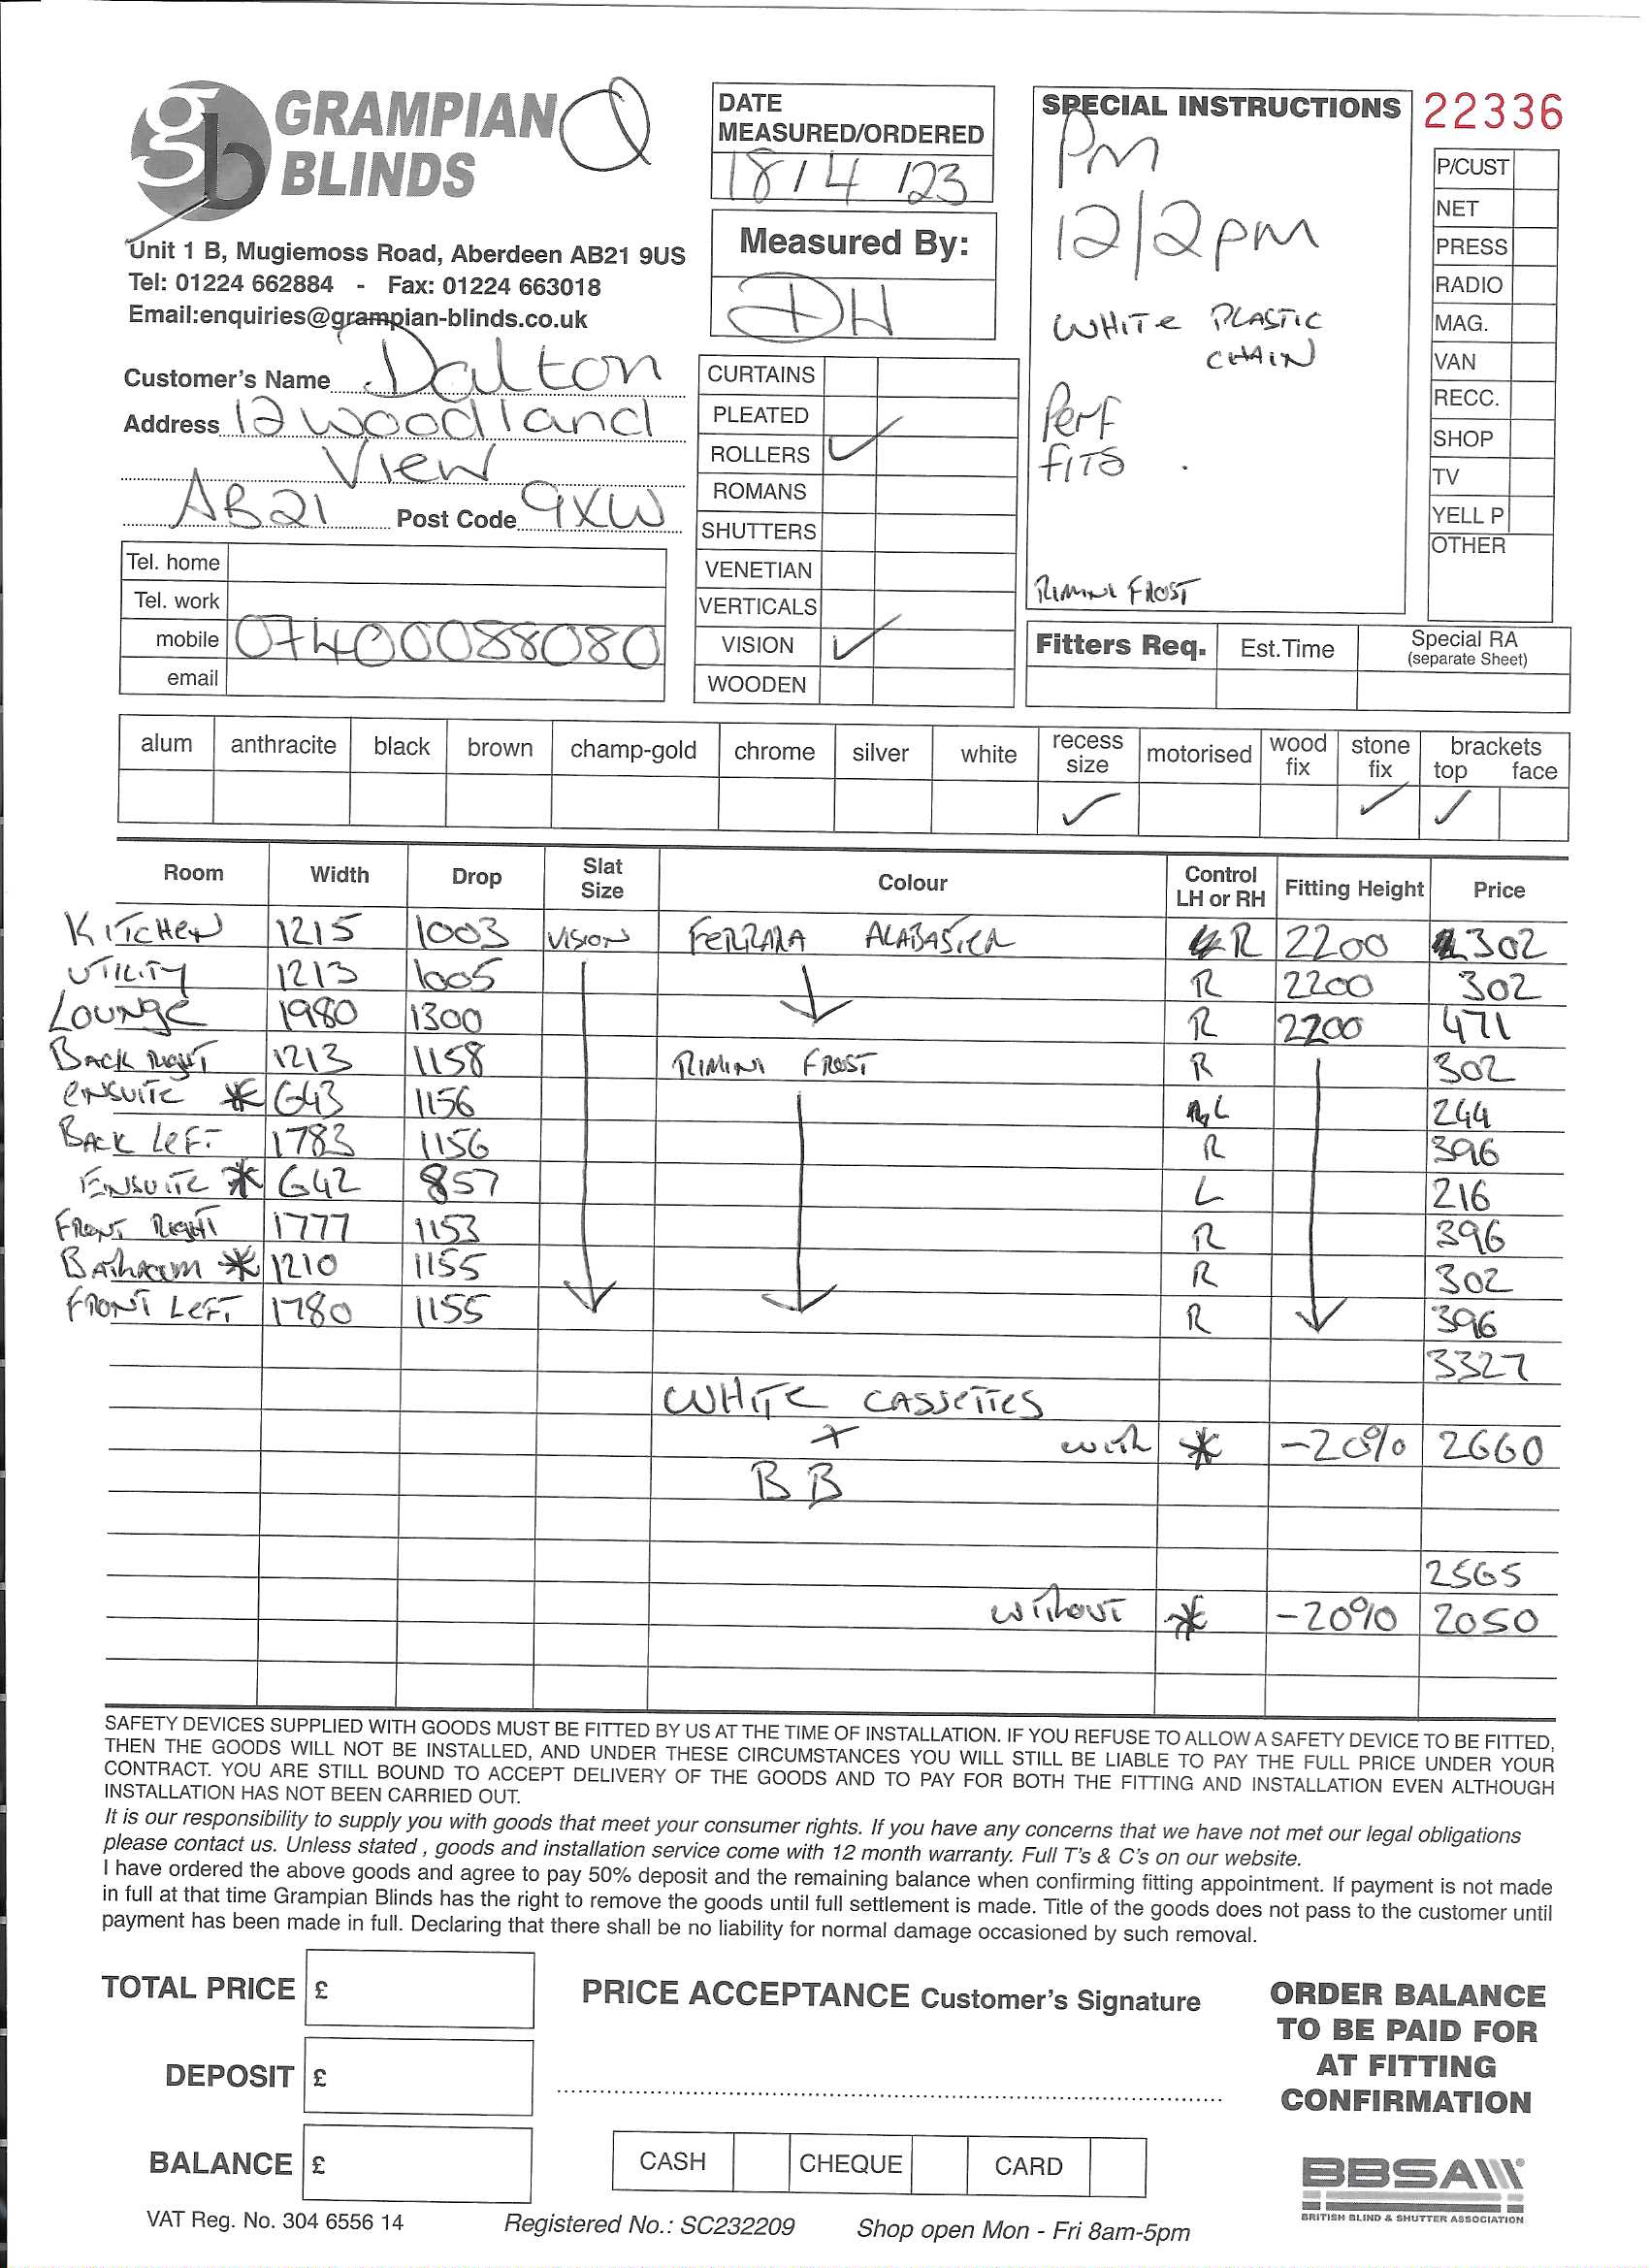 GRAMPIAN BLINDS
Q
Unit 1 B, Mugiemoss Road, Aberdeen AB21 9US
Tel: 01224 662884 - Fax: 01224 663018
Email:enquiries@grampian-blinds.co.uk
Customer's Name Dalton
Address 12 Woodland
View
AB21 Post Code 9XW
Tel. home
Tel. work
mobile 07400088080
email
DATE
MEASURED/ORDERED
18/4/23
Measured By:
DH
CURTAINS
PLEATED
ROLLERS ✓
ROMANS
SHUTTERS
VENETIAN
VERTICALS
VISION ✓
WOODEN
SPECIAL INSTRUCTIONS
PM
12/2pm
WHITE PLASTIC
CHAIN
Perf
fITS
RIMINI FROST
22336
P/CUST
NET
PRESS
RADIO
MAG.
VAN
RECC.
SHOP
TV
YELL P
OTHER
Fitters Req. Est.Time Special RA
(separate Sheet)
alum anthracite black brown champ-gold chrome silver white recess size motorised wood fix stone fix brackets top face
✓ ✓ ✓
Room Width Drop Slat Size Colour Control LH or RH Fitting Height Price
KITCHEN 1215 1003 VISION FERRARA ALABASTER R 2200 302
UTILITY 1213 1005 R 2200 302
LOUNGE 1980 1300 R 2200 471
BACK RIGHT 1213 1158 RIMINI FROST R 302
ENSUITE * 643 1156 L 244
BACK LEFT 1783 1156 R 396
ENSUITE * 642 857 L 216
FRONT RIGHT 1777 1153 R 396
BATHROOM * 1210 1155 R 302
FRONT LEFT 1780 1155 R 396
3327
WHITE CASSETTES
+ with * -20% 2660
BB
2565
WITHOUT * -20% 2050
SAFETY DEVICES SUPPLIED WITH GOODS MUST BE FITTED BY US AT THE TIME OF INSTALLATION. IF YOU REFUSE TO ALLOW A SAFETY DEVICE TO BE FITTED,
THEN THE GOODS WILL NOT BE INSTALLED, AND UNDER THESE CIRCUMSTANCES YOU WILL STILL BE LIABLE TO PAY THE FULL PRICE UNDER YOUR
CONTRACT. YOU ARE STILL BOUND TO ACCEPT DELIVERY OF THE GOODS AND TO PAY FOR BOTH THE FITTING AND INSTALLATION EVEN ALTHOUGH
INSTALLATION HAS NOT BEEN CARRIED OUT.
It is our responsibility to supply you with goods that meet your consumer rights. If you have any concerns that we have not met our legal obligations
please contact us. Unless stated , goods and installation service come with 12 month warranty. Full T's & C's on our website.
I have ordered the above goods and agree to pay 50% deposit and the remaining balance when confirming fitting appointment. If payment is not made
in full at that time Grampian Blinds has the right to remove the goods until full settlement is made. Title of the goods does not pass to the customer until
payment has been made in full. Declaring that there shall be no liability for normal damage occasioned by such removal.
TOTAL PRICE £
DEPOSIT £
BALANCE £
PRICE ACCEPTANCE Customer's Signature
CASH CHEQUE CARD
ORDER BALANCE
TO BE PAID FOR
AT FITTING
CONFIRMATION
BBSA
BRITISH BLIND & SHUTTER ASSOCIATION
VAT Reg. No. 304 6556 14 Registered No.: SC232209 Shop open Mon - Fri 8am-5pm